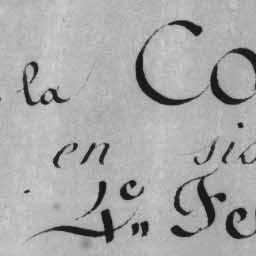 la Co
en sic
4e Fe